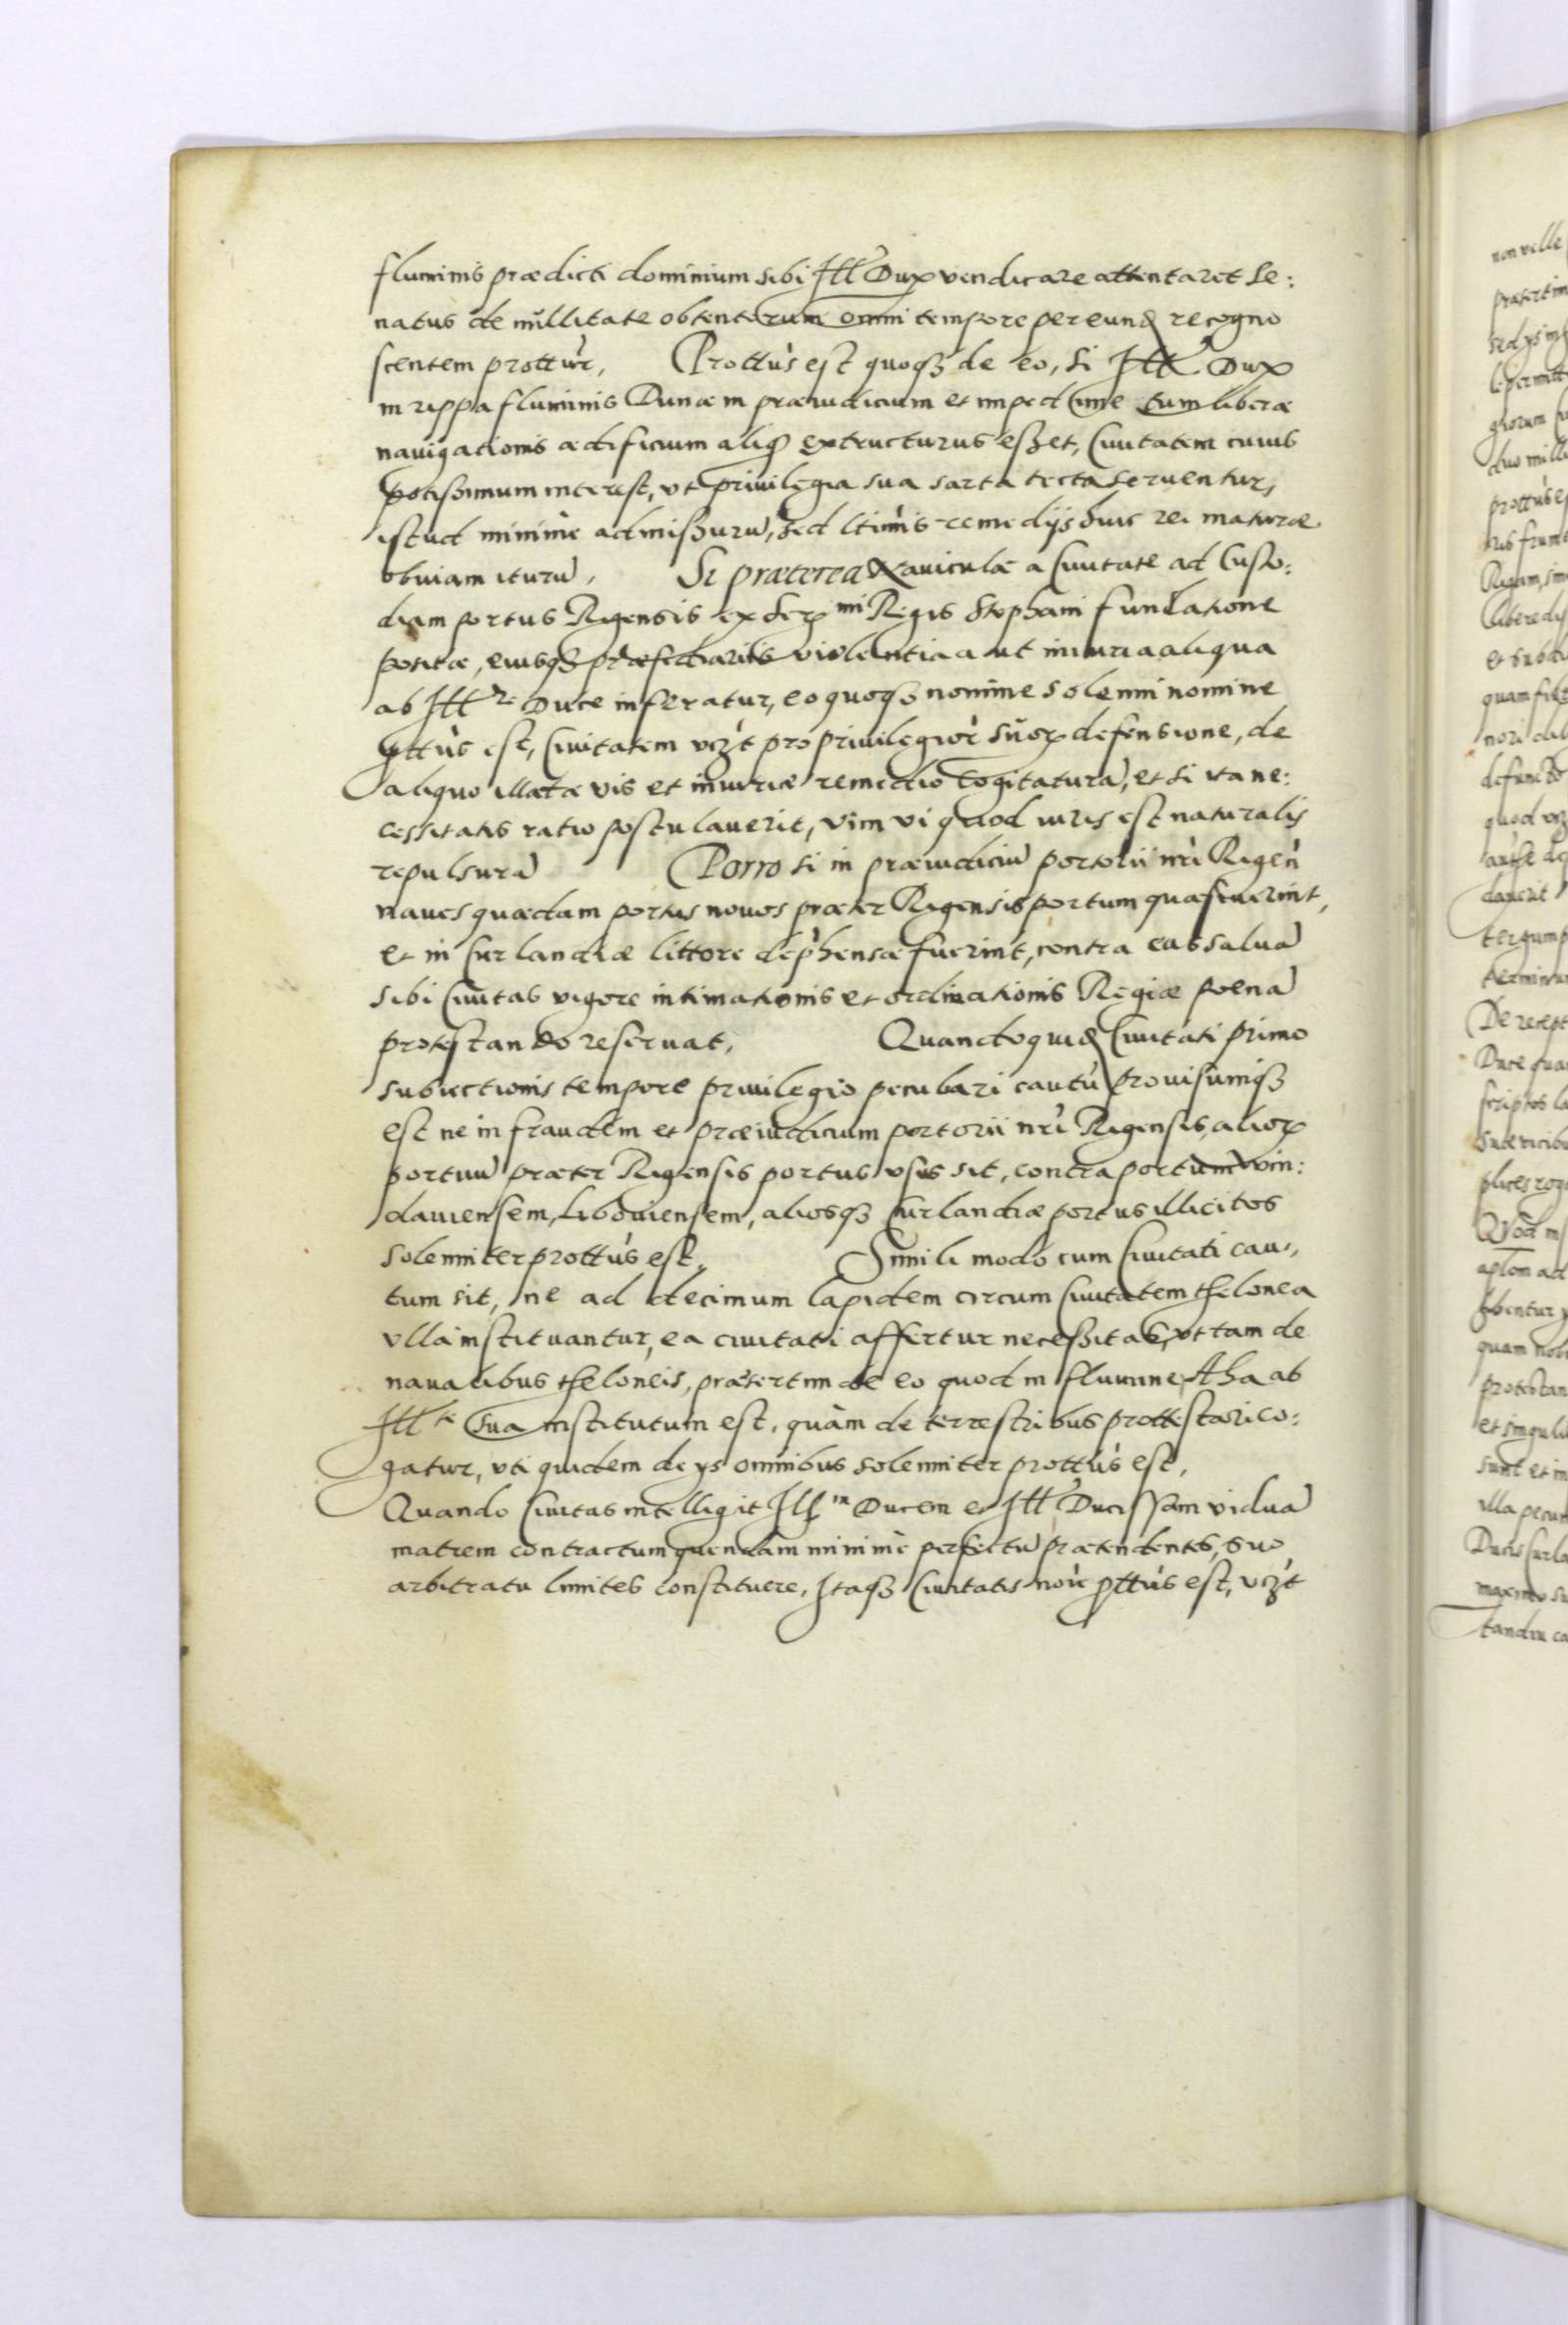 fluminis prædicti dominium sibi Ill Dux vendicare attentaret Se:
natus de nullitate obtentorum omni tempore pereund recogno
scentem prottur, Prottus est quoq3 de eo, si Ill Dux
in rippa fluminis Dunæ in præiudicium et impedime tum liberæ
nauigationis ædificium aliq extructurus esset, Ciuitatem cuius
potissimum interest, vt priuilegia sua sarta tecta seruentur,
istud minimè admissurū, sed ltimis remedijs huic rei maturæ
obuiam iturū, Si præterea Nauiculæ a Ciuitate ad Custo:
diam portus Rigensis ex Ser mi Regis Stephani fundatione
positæ, eiusq3 præfectiarijs violentia aut iniuria aliqua
ab Ill re Duce inferatur, eo quoq3 nomine solenni nomine
pttus est, Ciuitatem vz't pro priuilegior suor defensione, de
aliquo illatæ vis et iniuriæ remedio cogitaturā, et si ita ne:
cessitatis ratio postulauerit, vim vi quod iuris est naturalis
repulsurā Porro si in præiudiciū portorii nri Rigen
naues quædam portus nouos præter Rigensis portum quæsiuerint,
et in Curlandiæ littore dephensæ fuerint, contra eas saluā
sibi Ciuitas vigore intimationis et ordinationis Regiæ poenā
protestando reseruat, Quandoquid Ciuitati primo
subiectionis tempore priuilegio peculiari cautū prouisumq3
est ne in fraudem et præiudicium portorii nri Rigensis, alior
portuū præter Rigensis portus vsus sit, contra portum Win:
dauiensem, Libouiensem, aliosq3 Curlandiæ portus illicitos
solenniter prottus est, Simili modo cum Ciuitati cau,
tum sit, ne ad decimum lapidem circum Ciuitatem thelonea
vlla instituantur, ea ciuitati affertur necessitas, vt tam de
naualibus theloneis, præsertim de eo quod in flumine Aha ab
Ill te Sua institutum est, quàm de terrestribus prottestari co:
gatur, vti quidem de ys omnibus solenniter prottus est,
Quando Ciuitas intelligit Ill m Ducem et Ill Ducissam viduā
matrem contractum quendam minimè perfectū prætendentes, suo
arbitratu limites constituere, Itaq3 Ciuitatis noie pttus est, vz't